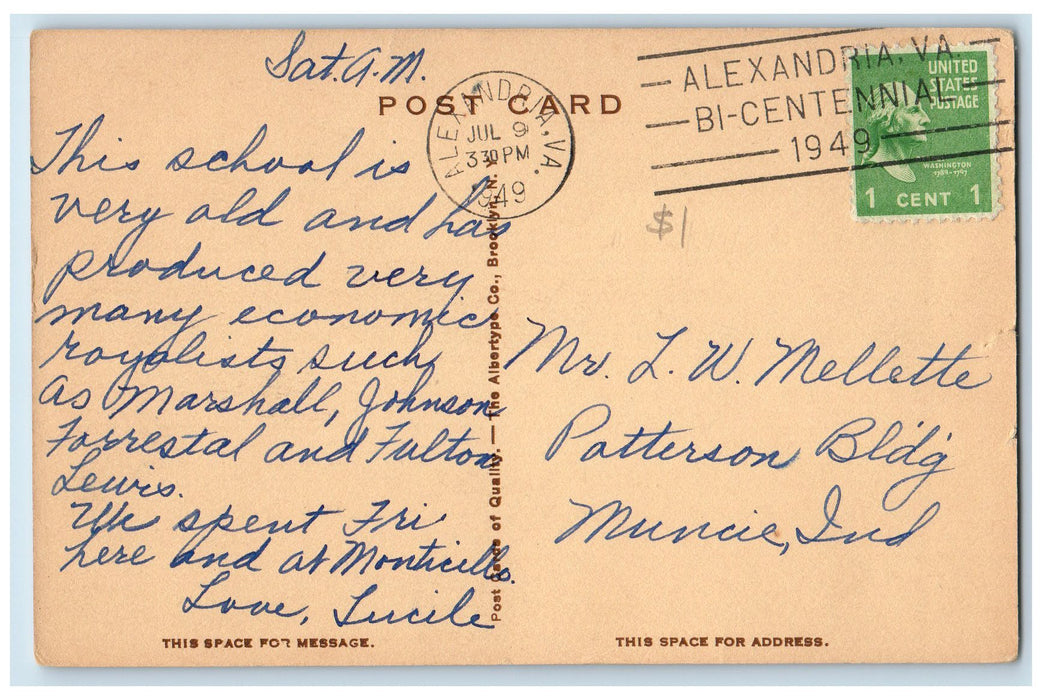 Sat. A.M.
POST CARD
This school is
very old and has
produced very
many economic
royalists such
as Marshall, Johnson
Forrestal and Fulton
Lewis.
We spent Fri
here and at Monticello.
Love, Lucile
THIS SPACE FOR MESSAGE.
ALEXANDRIA, VA.
JUL 9
3 30 PM
1949
Post Cards of Quality. — The Albertype Co., Brooklyn, N. Y.
ALEXANDRIA, VA.
BI-CENTENNIAL
1949
UNITED
STATES
POSTAGE
WASHINGTON
1789-1797
1 CENT 1
$1
Mr. L. W. Mellette
Patterson Bldg
Muncie, Ind
THIS SPACE FOR ADDRESS.